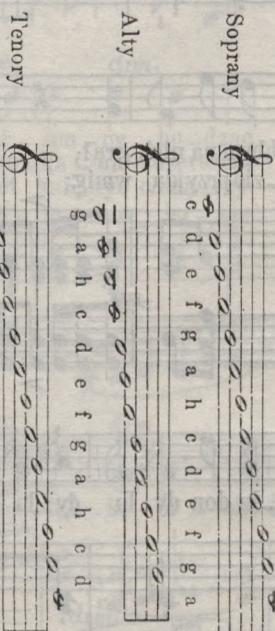 Soprany
c d e f g a h c d e f g a
Alty
g a h c d e f g a h c d
Tenory